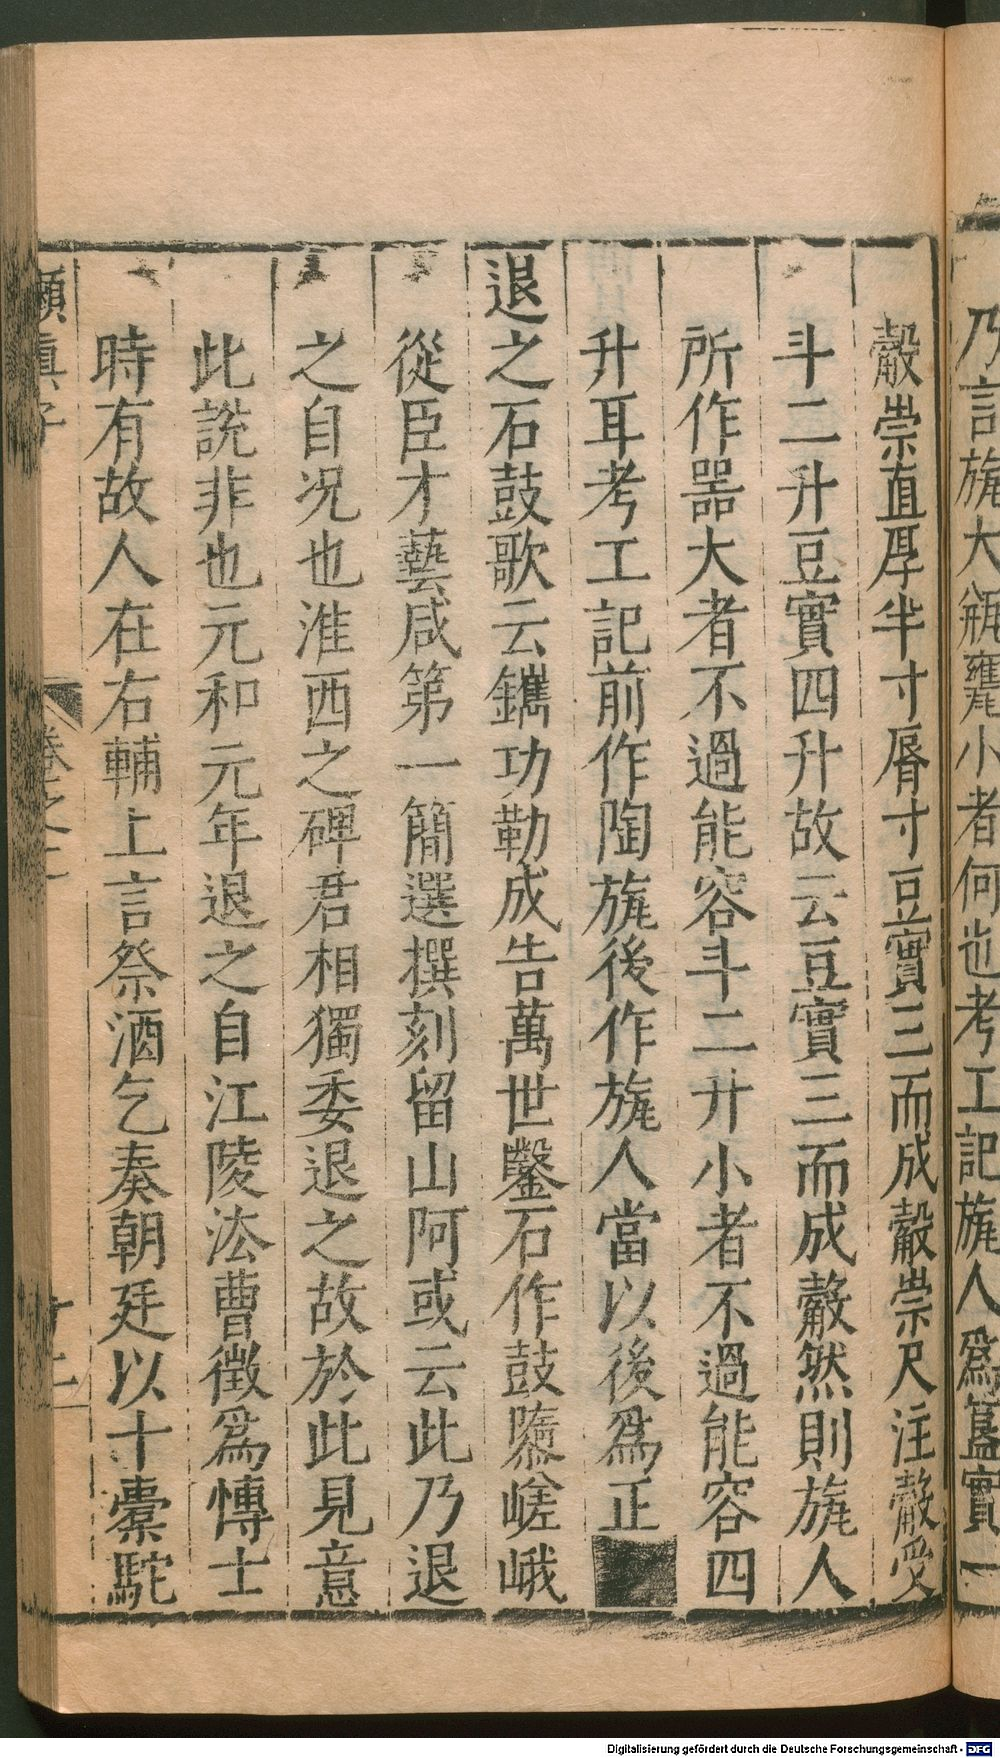 乃言㼚大缾罋小者何也考工記㼚人爲簋實一
觳崇直厚半寸脣寸豆實三而成觳崇尺注觳受
斗二升豆實四升故云豆實三而成觳然則㼚人
所作噐大者不過能容斗二升小者不過能容四
升耳考工記前作陶㼚後作㼚人當以後爲正
退之石鼓歌云鐫功勒成告萬世鑿石作鼓隳嵯峨
從臣才藝咸第一簡選撰刻留山阿或云此乃退
之自况也淮西之碑君相獨委退之故於此見意
此說非也元和元年退之自江陵法曹徵爲愽士
時有故人在右輔上言祭酒乞奏朝廷以十橐駝
嬾眞子
卷之
十二
Digitalisierung gefördert durch die Deutsche Forschungsgemeinschaft - DFG